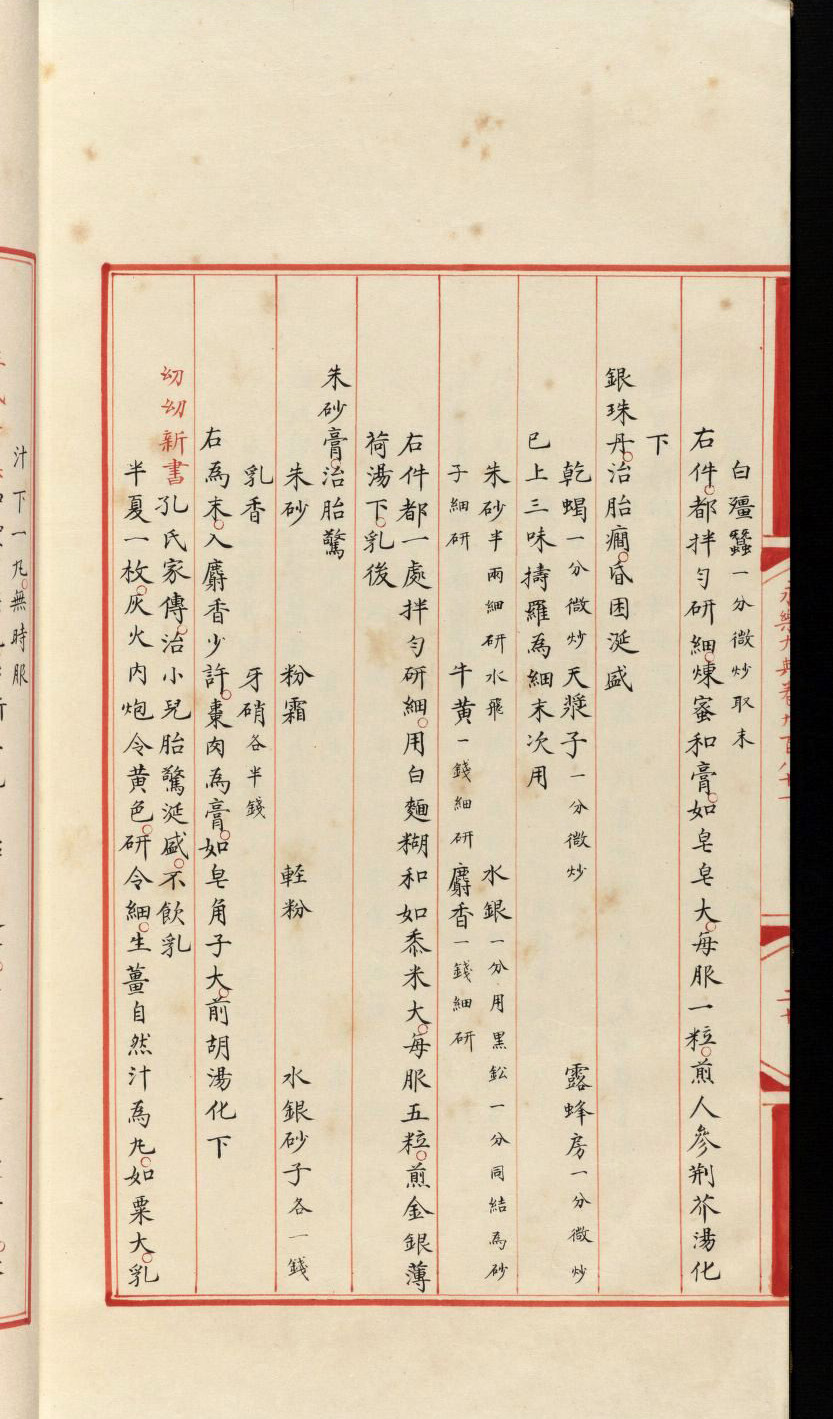 白殭蠶一分微炒取末
右件都拌勻研細煉蜜和膏如皂皂大每服一粒煎人參荆芥湯化
下
銀珠丹治胎癇昏困涎盛
乾蝎一分微炒天漿子一分微炒 露蜂房一分微炒
已上三味擣羅為細末次用
朱砂半兩細研水飛 水銀一分用黑鈆一分同結為砂
子細研 牛黄一錢細研 麝香一錢細研
右件都一處拌勻研細用白麵糊和如黍米大每服五粒煎金銀薄
荷湯下乳後
朱砂膏治胎驚
朱砂 粉霜 輊粉 水銀砂子各一錢
乳香 牙硝各半錢
右為末入麝香少許棗肉為膏如皂角子大前胡湯化下
幼幼新書孔氏家傳治小兒胎驚涎盛不飲乳
半夏一枚灰火内炮令黄色研令細生薑自然汁為丸如粟大乳
汁下一丸無時服